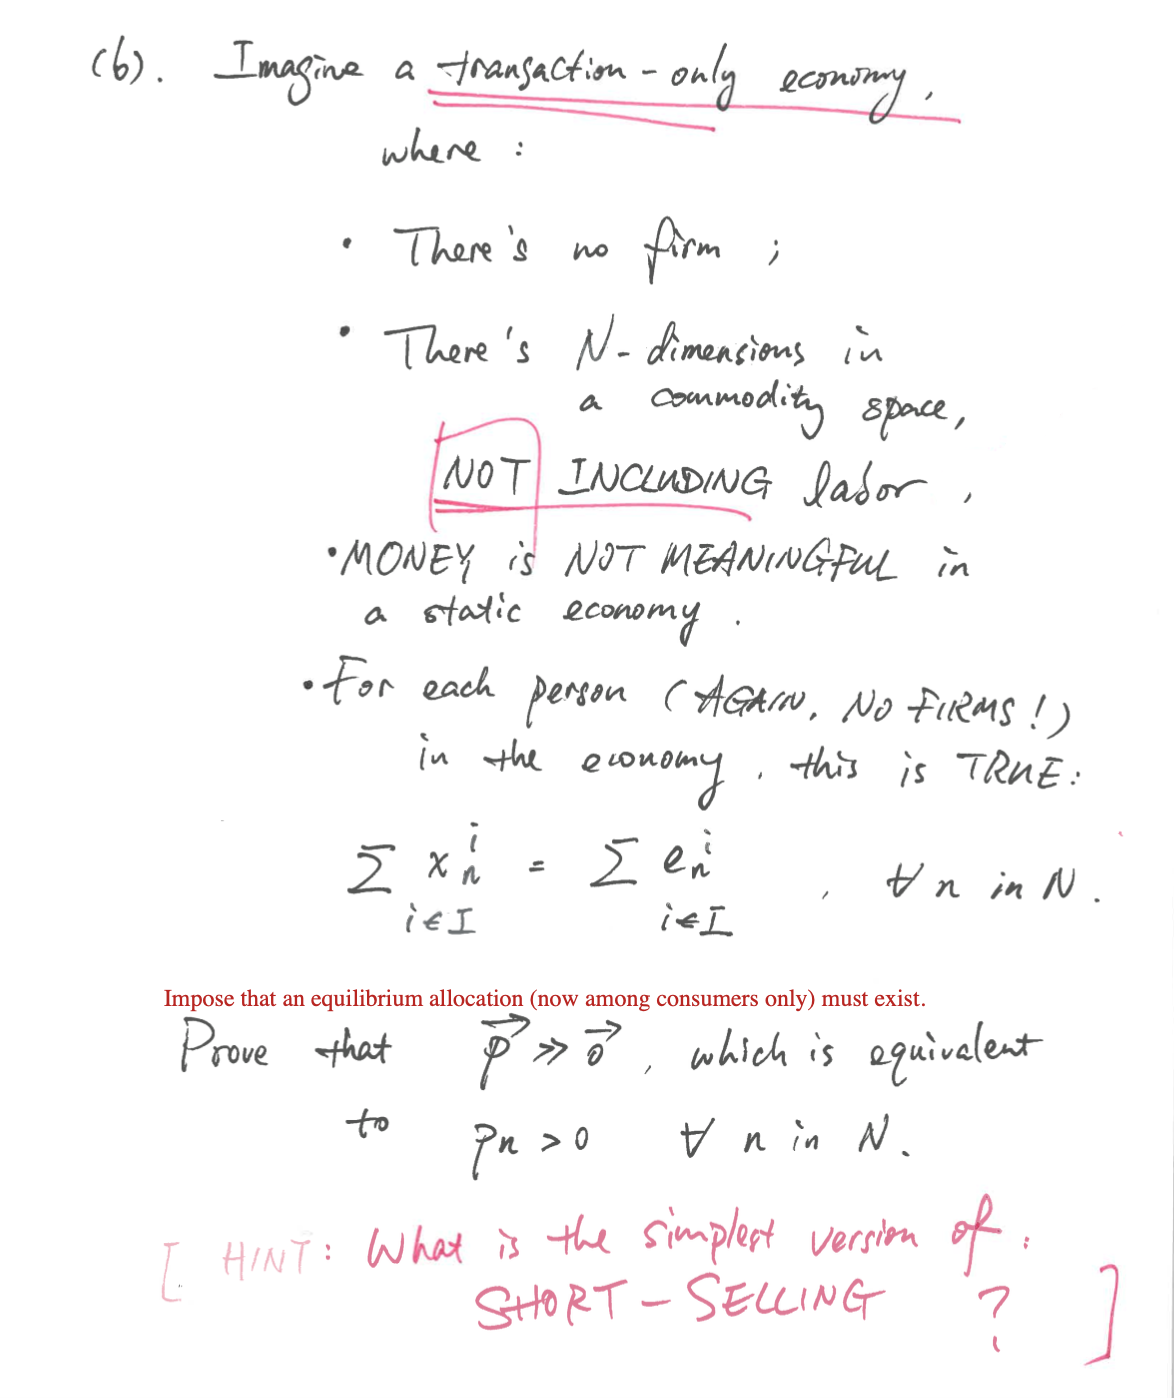 (b). Imagine a transaction-only economy,
where :
• There's no firm ;
• There's N-dimensions in
a commodity space,
NOT INCLUDING labor,
• MONEY is NOT MEANINGFUL in
a static economy.
• For each person (AGAIN, NO FIRMS!)
in the economy, this is TRUE:
∑_{i∈I} x_n^i = ∑_{i∈I} e_n^i , ∀ n in N.
Impose that an equilibrium allocation (now among consumers only) must exist.
Prove that p⃗ ≫ 0⃗, which is equivalent
to pn > 0 ∀ n in N.
[ HINT: What is the simplest version of :
SHORT-SELLING ? ]